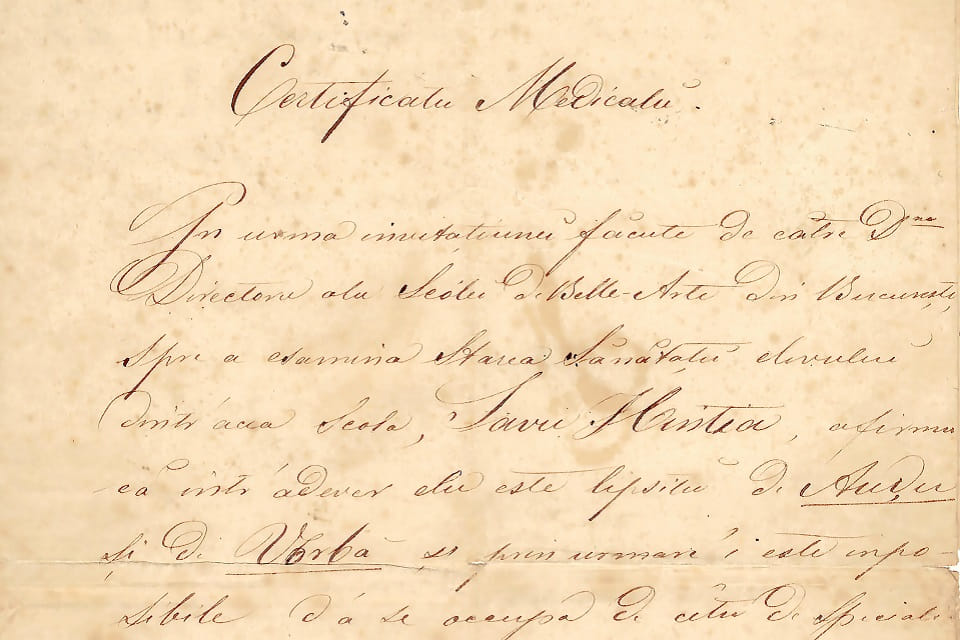 Certificatu Medicalu.
In urma invitațiunei făcute de către Dnu
Directore alu Scólei de Belle-Arte din Bucuresți,
spre a esamina Starea Sănătatii elevului
dintr'acea Scola, Savu Hintia, afirmu
că intr'adever elu este lipsitu de Audu
și de Vorbă și prin urmare i este inpo-
sibile d'a se occupa de câtu de Speciali-